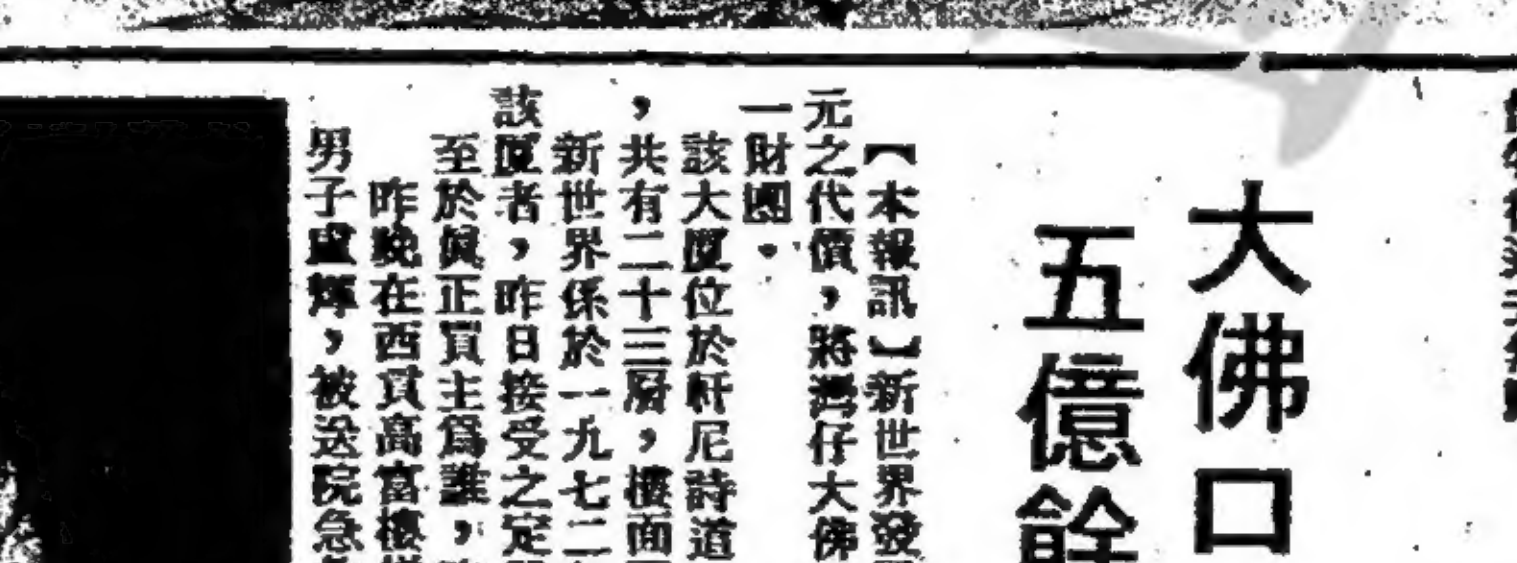 大佛口
五億餘
【本報訊】新世界發
元之代價，將灣仔大佛
一財團。
該大厦位於軒尼詩道
，共有二十三層，樓面
新世界係於一九七二
該厦者，昨日接受之定
至於眞正買主爲誰，
昨晚在西貢高富樓
男子盧輝，被送院急